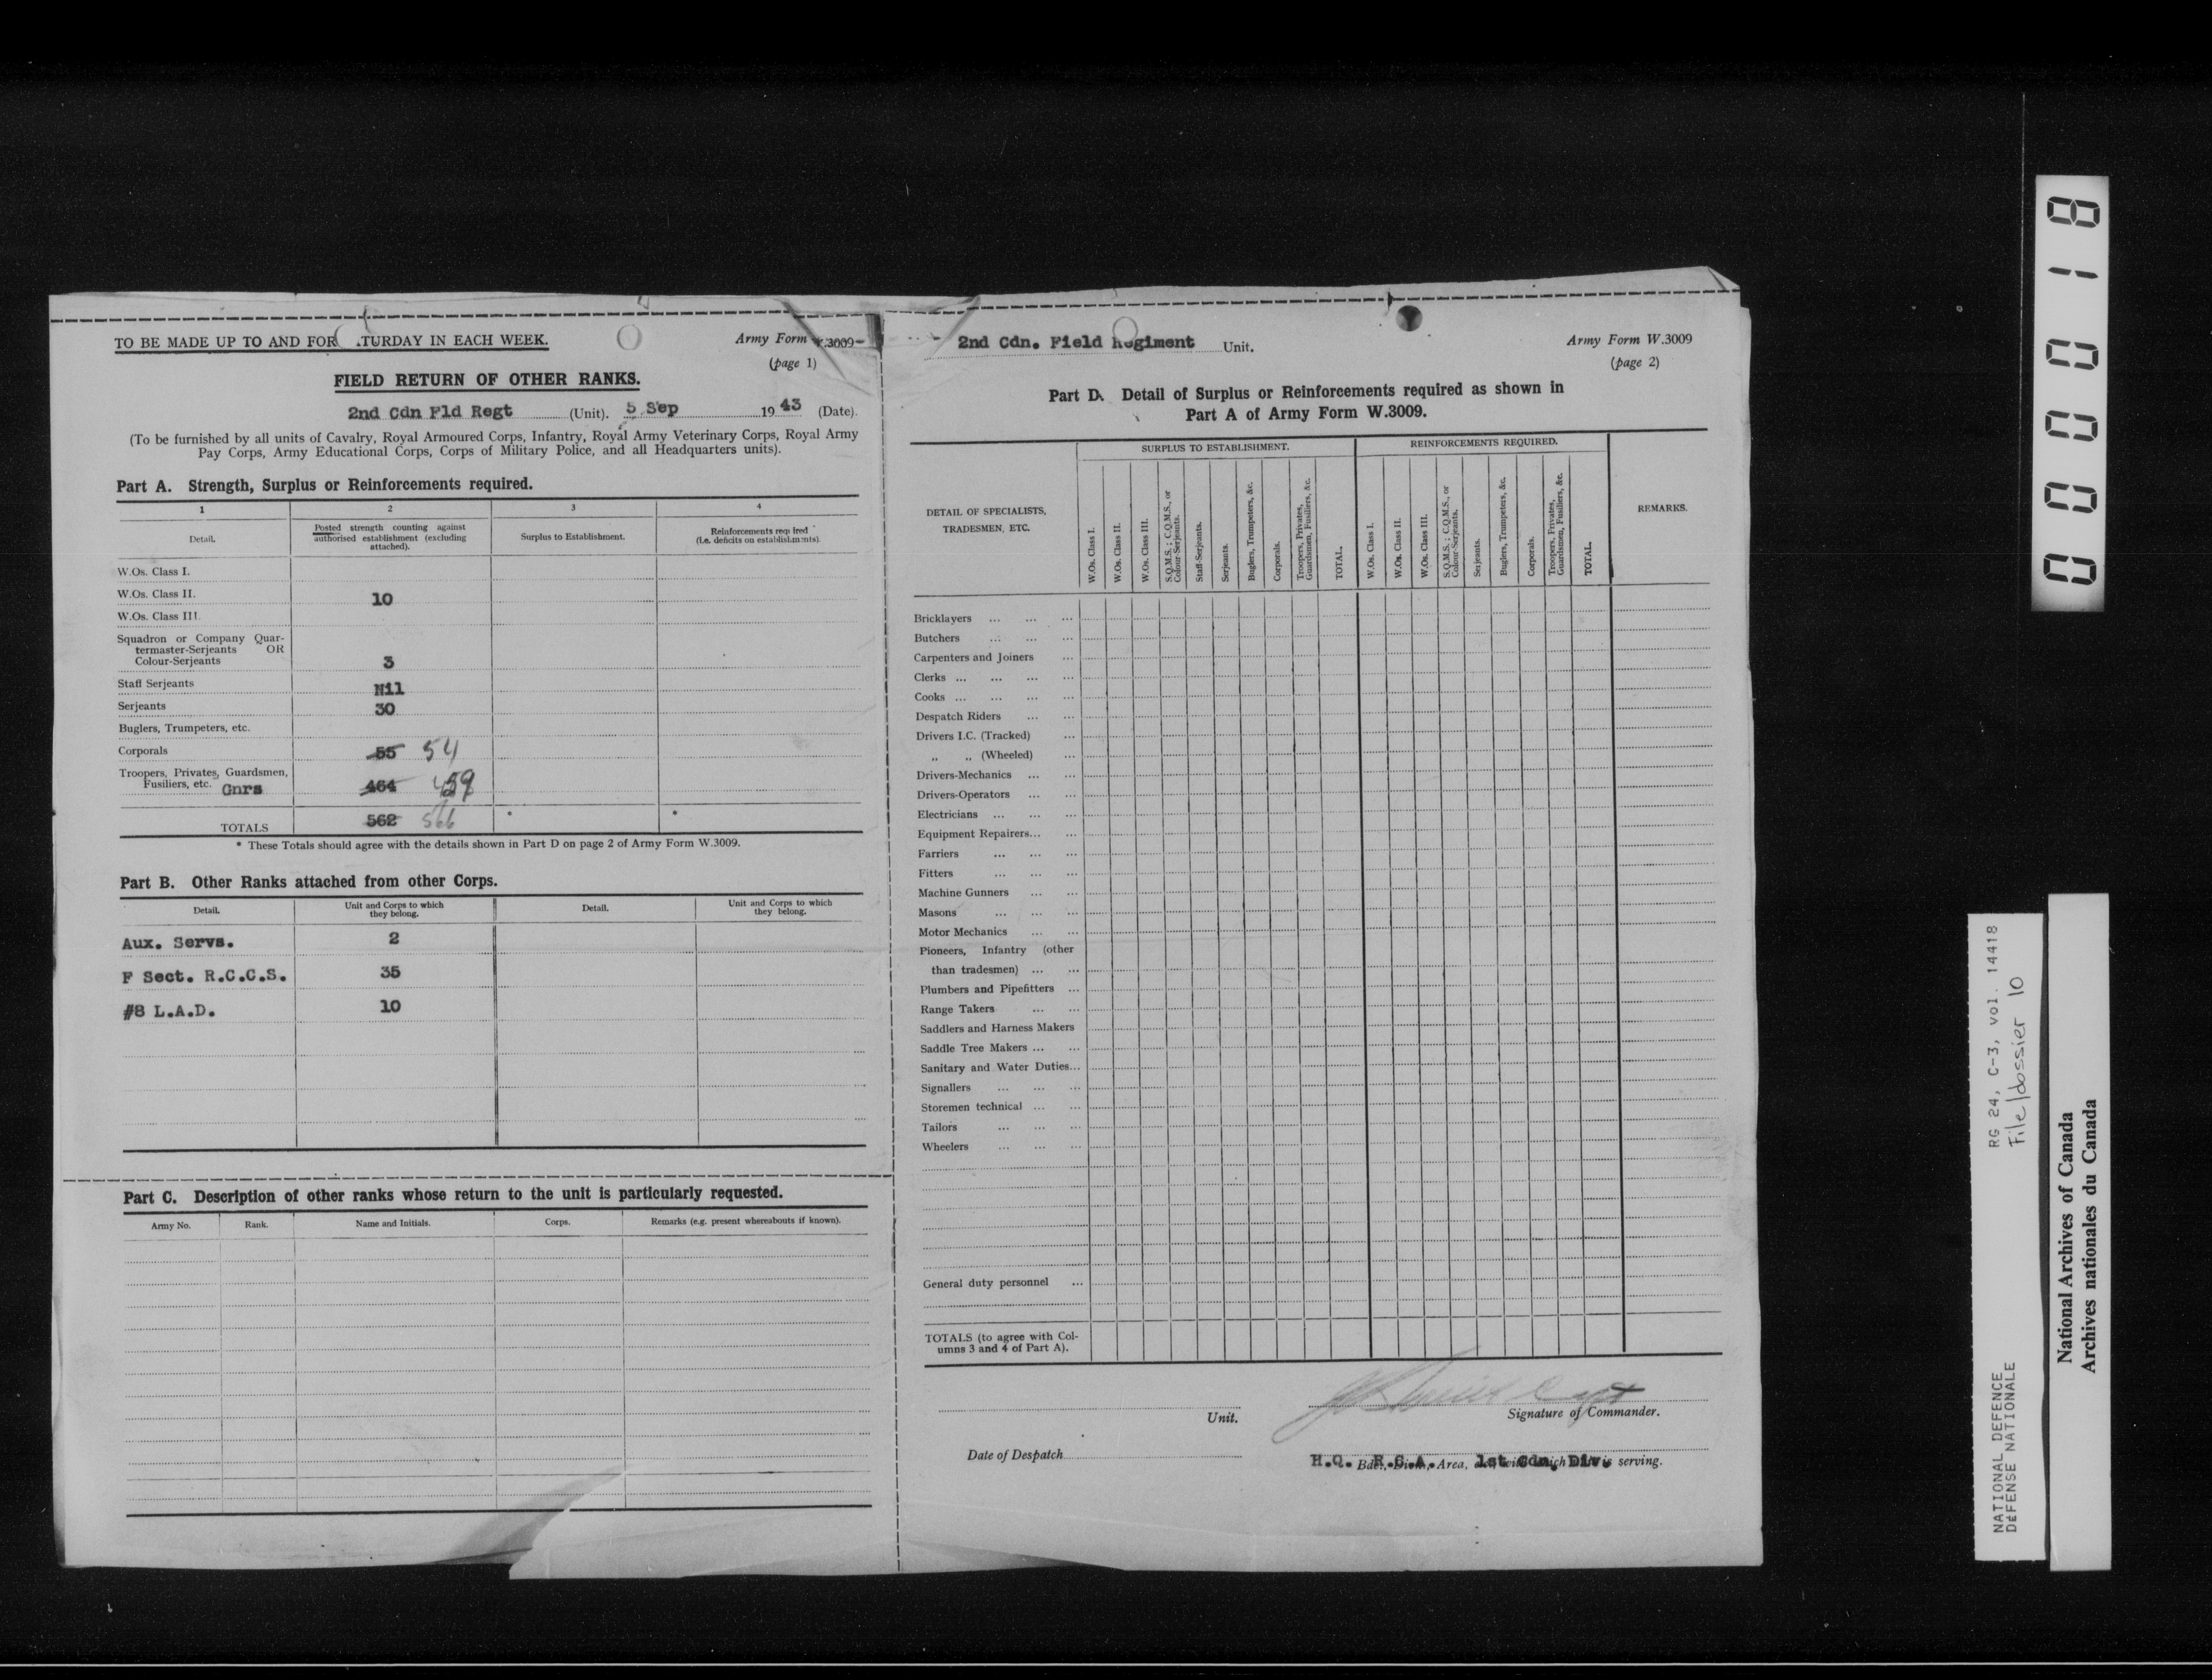 TO BE MADE UP TO AND FOR .TURDAY IN EACH WEEK.
Army Form W.3009
(page 1)
FIELD RETURN OF OTHER RANKS.
2nd Cdn Fld Regt (Unit). 5 Sep 1943 (Date).
(To be furnished by all units of Cavalry, Royal Armoured Corps, Infantry, Royal Army Veterinary Corps, Royal Army
Pay Corps, Army Educational Corps, Corps of Military Police, and all Headquarters units).
Part A. Strength, Surplus or Reinforcements required.
1 2 3 4
Detail.
Posted strength counting against
authorised establishment (excluding
attached).
Surplus to Establishment.
Reinforcements required
(i.e. deficits on establishments).
W.Os. Class I.
W.Os. Class II. 10
W.Os. Class III.
Squadron or Company Quar-
termaster-Serjeants OR
Colour-Serjeants 3
Staff Serjeants Nil
Serjeants 30
Buglers, Trumpeters, etc.
Corporals 55 54
Troopers, Privates, Guardsmen,
Fusiliers, etc. Gnrs 464 459
TOTALS 562 566 * *
* These Totals should agree with the details shown in Part D on page 2 of Army Form W.3009.
Part B. Other Ranks attached from other Corps.
Detail.
Unit and Corps to which
they belong.
Detail.
Unit and Corps to which
they belong.
Aux. Servs. 2
F Sect. R.C.C.S. 35
#8 L.A.D. 10
Part C. Description of other ranks whose return to the unit is particularly requested.
Army No. Rank. Name and Initials. Corps. Remarks (e.g. present whereabouts if known).
2nd Cdn. Field Regiment Unit.
Army Form W.3009
(page 2)
Part D. Detail of Surplus or Reinforcements required as shown in
Part A of Army Form W.3009.
DETAIL OF SPECIALISTS,
TRADESMEN, ETC.
SURPLUS TO ESTABLISHMENT.
W.Os. Class I.
W.Os. Class II.
W.Os. Class III.
S.Q.M.S.; C.Q.M.S., or
Colour-Serjeants.
Staff-Serjeants.
Serjeants.
Buglers, Trumpeters, &c.
Corporals.
Troopers, Privates,
Guardsmen, Fusiliers, &c.
TOTAL.
REINFORCEMENTS REQUIRED.
W.Os. Class I.
W.Os. Class II.
W.Os. Class III.
S.Q.M.S.; C.Q.M.S., or
Colour-Serjeants.
Serjeants.
Buglers, Trumpeters, &c.
Corporals.
Troopers, Privates,
Guardsmen, Fusiliers, &c.
TOTAL.
REMARKS.
Bricklayers ... ... ...
Butchers ... ... ...
Carpenters and Joiners ...
Clerks ... ... ... ...
Cooks ... ... ... ...
Despatch Riders ... ...
Drivers I.C. (Tracked) ...
„ „ (Wheeled) ...
Drivers-Mechanics ... ...
Drivers-Operators ... ...
Electricians ... ... ...
Equipment Repairers... ...
Farriers ... ... ...
Fitters ... ... ...
Machine Gunners ... ...
Masons ... ... ...
Motor Mechanics ... ...
Pioneers, Infantry (other
than tradesmen) ... ...
Plumbers and Pipefitters ...
Range Takers ... ...
Saddlers and Harness Makers
Saddle Tree Makers ... ...
Sanitary and Water Duties...
Signallers ... ... ...
Storemen technical ... ...
Tailors ... ... ...
Wheelers ... ... ...
General duty personnel ...
TOTALS (to agree with Col-
umns 3 and 4 of Part A).
Capt
Unit.
Signature of Commander.
Date of Despatch
H.Q. R.C.A. 1st Cdn. Div.
Bde., Divn., Area, with which Unit is serving.
000018
RG 24, C-3, vol. 14418
File/dossier 10
NATIONAL DEFENCE
DÉFENSE NATIONALE
National Archives of Canada
Archives nationales du Canada